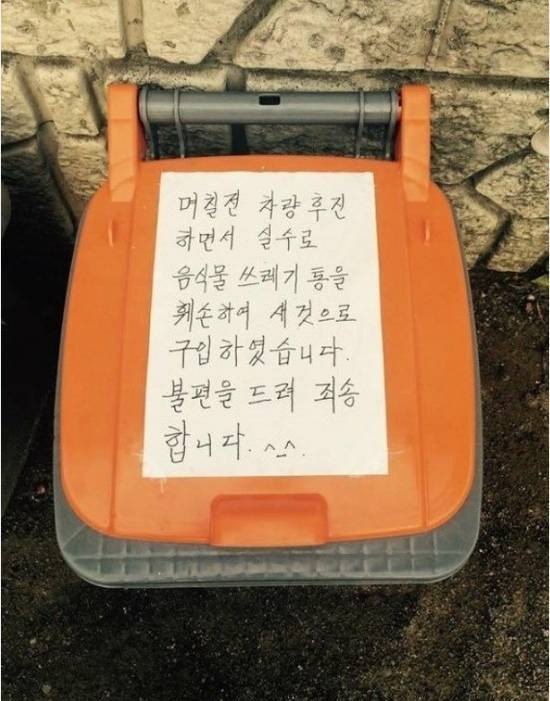 며칠전 차량후진
하면서 실수로
음식물 쓰레기 통을
훼손하여 새것으로
구입하였습니다.
불편을 드려 죄송
합니다. ^_^.